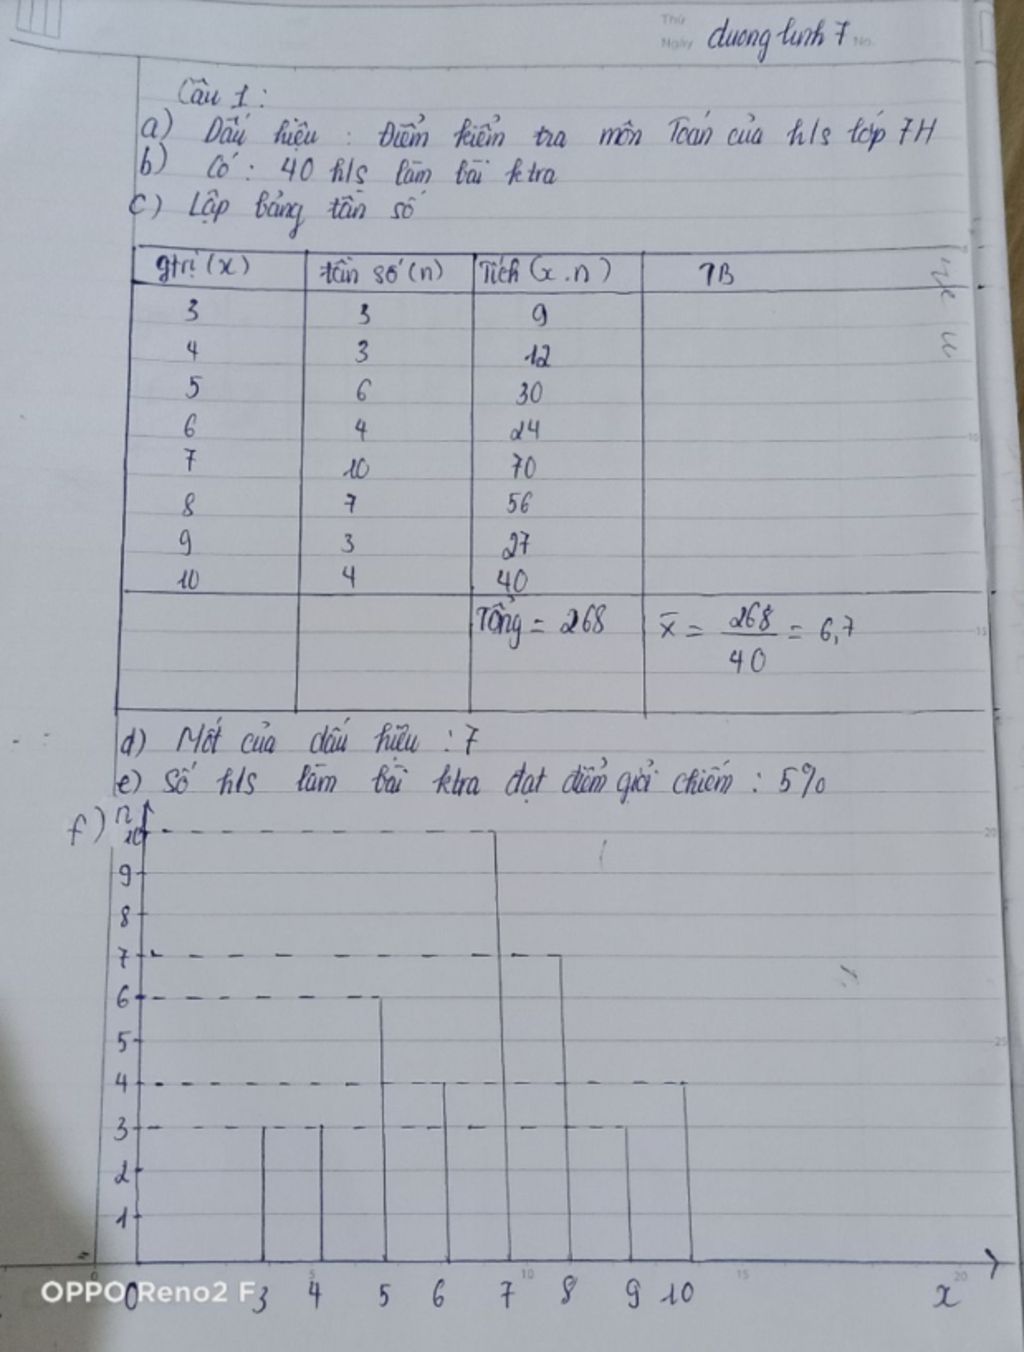 Thứ
Ngày No.
duong linh 7
Câu 1:
a) Dấu hiệu : Điểm kiểm tra môn Toán của h/s lớp 7H
b) Có : 40 h/s làm bài ktra
c) Lập bảng tần số
gtrị (x) tần số (n) Tích (x.n) TB
3 3 9
4 3 12
5 6 30
6 4 24
7 10 70
8 7 56
9 3 27
10 4 40
Tổng = 268 x̄ = 268/40 = 6,7
d) Mốt của dấu hiệu : 7
e) Số h/s làm bài ktra đạt điểm giỏi chiếm : 5%
f) n
10
9
8
7
6
5
4
3
2
1
0 3 4 5 6 7 8 9 10 x
5 10 15 20
OPPO Reno2 F